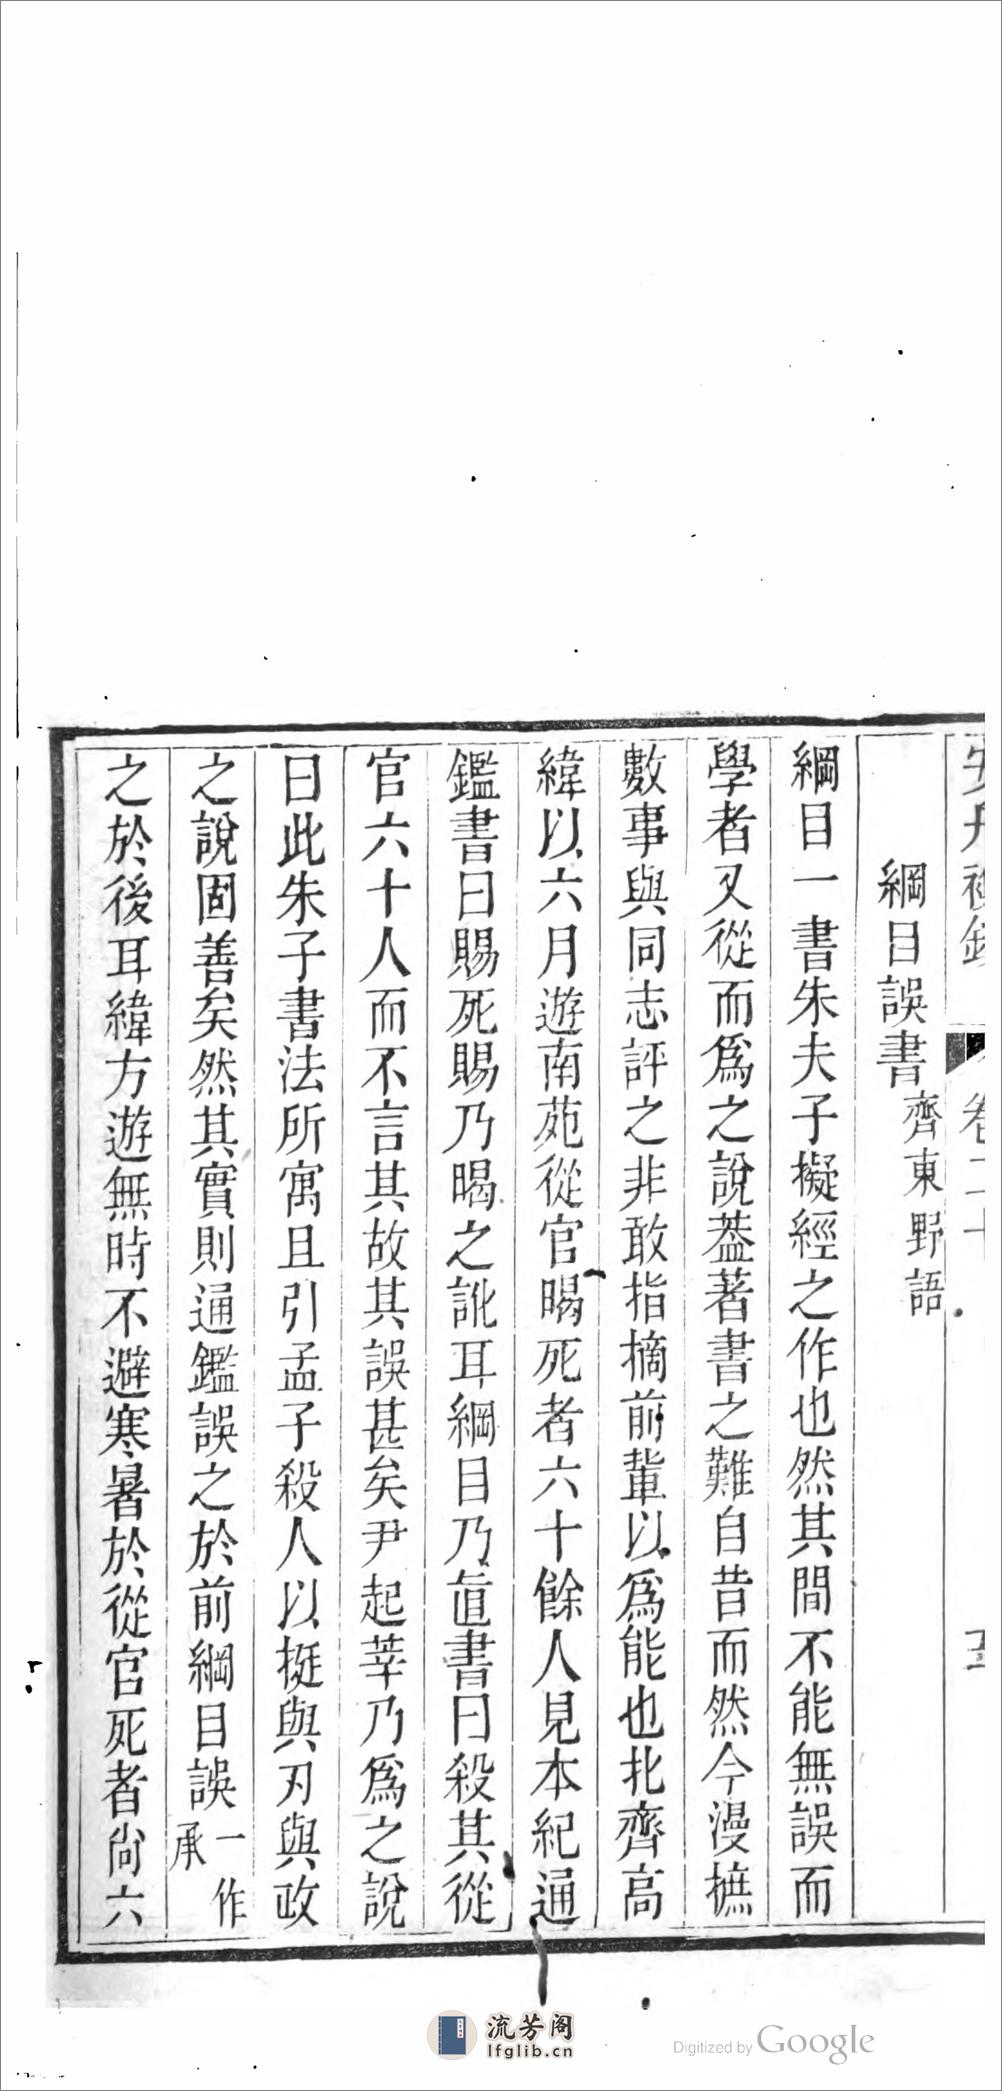 綱目誤書齊東野語
綱目一書朱夫子擬經之作也然其間不能無誤而
學者又從而爲之說葢著書之難自昔而然今漫摭
數事與同志評之非敢指摘前輩以爲能也北齊高
緯以六月遊南苑從官暍死者六十餘人見本紀通
鑑書曰賜死賜乃暍之訛耳綱目乃直書曰殺其從
官六十人而不言其故其誤甚矣尹起莘乃爲之說
曰此朱子書法所寓且引孟子殺人以挺與刃與政
之說固善矣然其實則通鑑誤之於前綱目誤一作承
之於後耳緯方遊無時不避寒暑於從官死者尚六
流芳阁
lfglib.cn
Digitized by Google